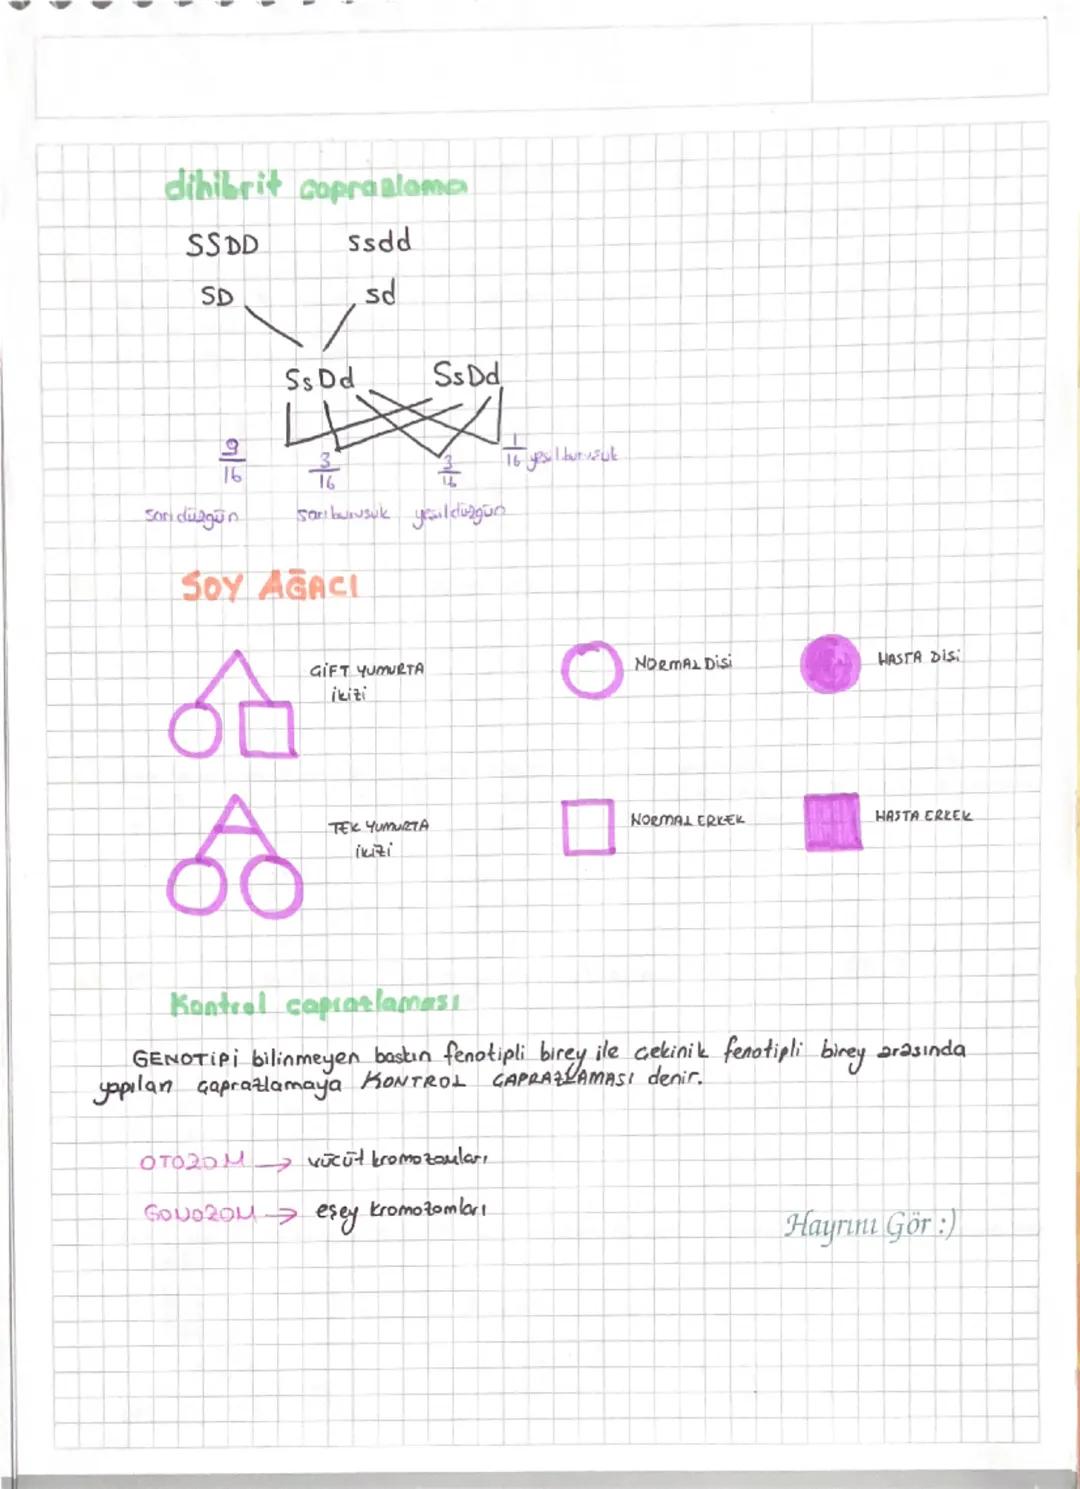 dihibrit çaprazlama
SSDD ssdd
SD sd
SsDd SsDd
9/16 3/16 3/16 1/16 yeşil buruşuk
sarı düzgün sarı buruşuk yeşil düzgün
SOY AĞACI
ÇİFT YUMURTA
ikizi
NORMAL Dişi
HASTA Dişi
TEK YUMURTA
ikizi
NORMAL ERKEK
HASTA ERKEK
Kontrol çaprazlaması
GENOTİPİ bilinmeyen baskın fenotipli birey ile çekinik fenotipli birey arasında
yapılan çaprazlamaya KONTROL ÇAPRAZLAMASI denir.
OTOZOM → vücüt kromozomları
GONOZOM → eşey kromozomları
Hayrını Gör :)